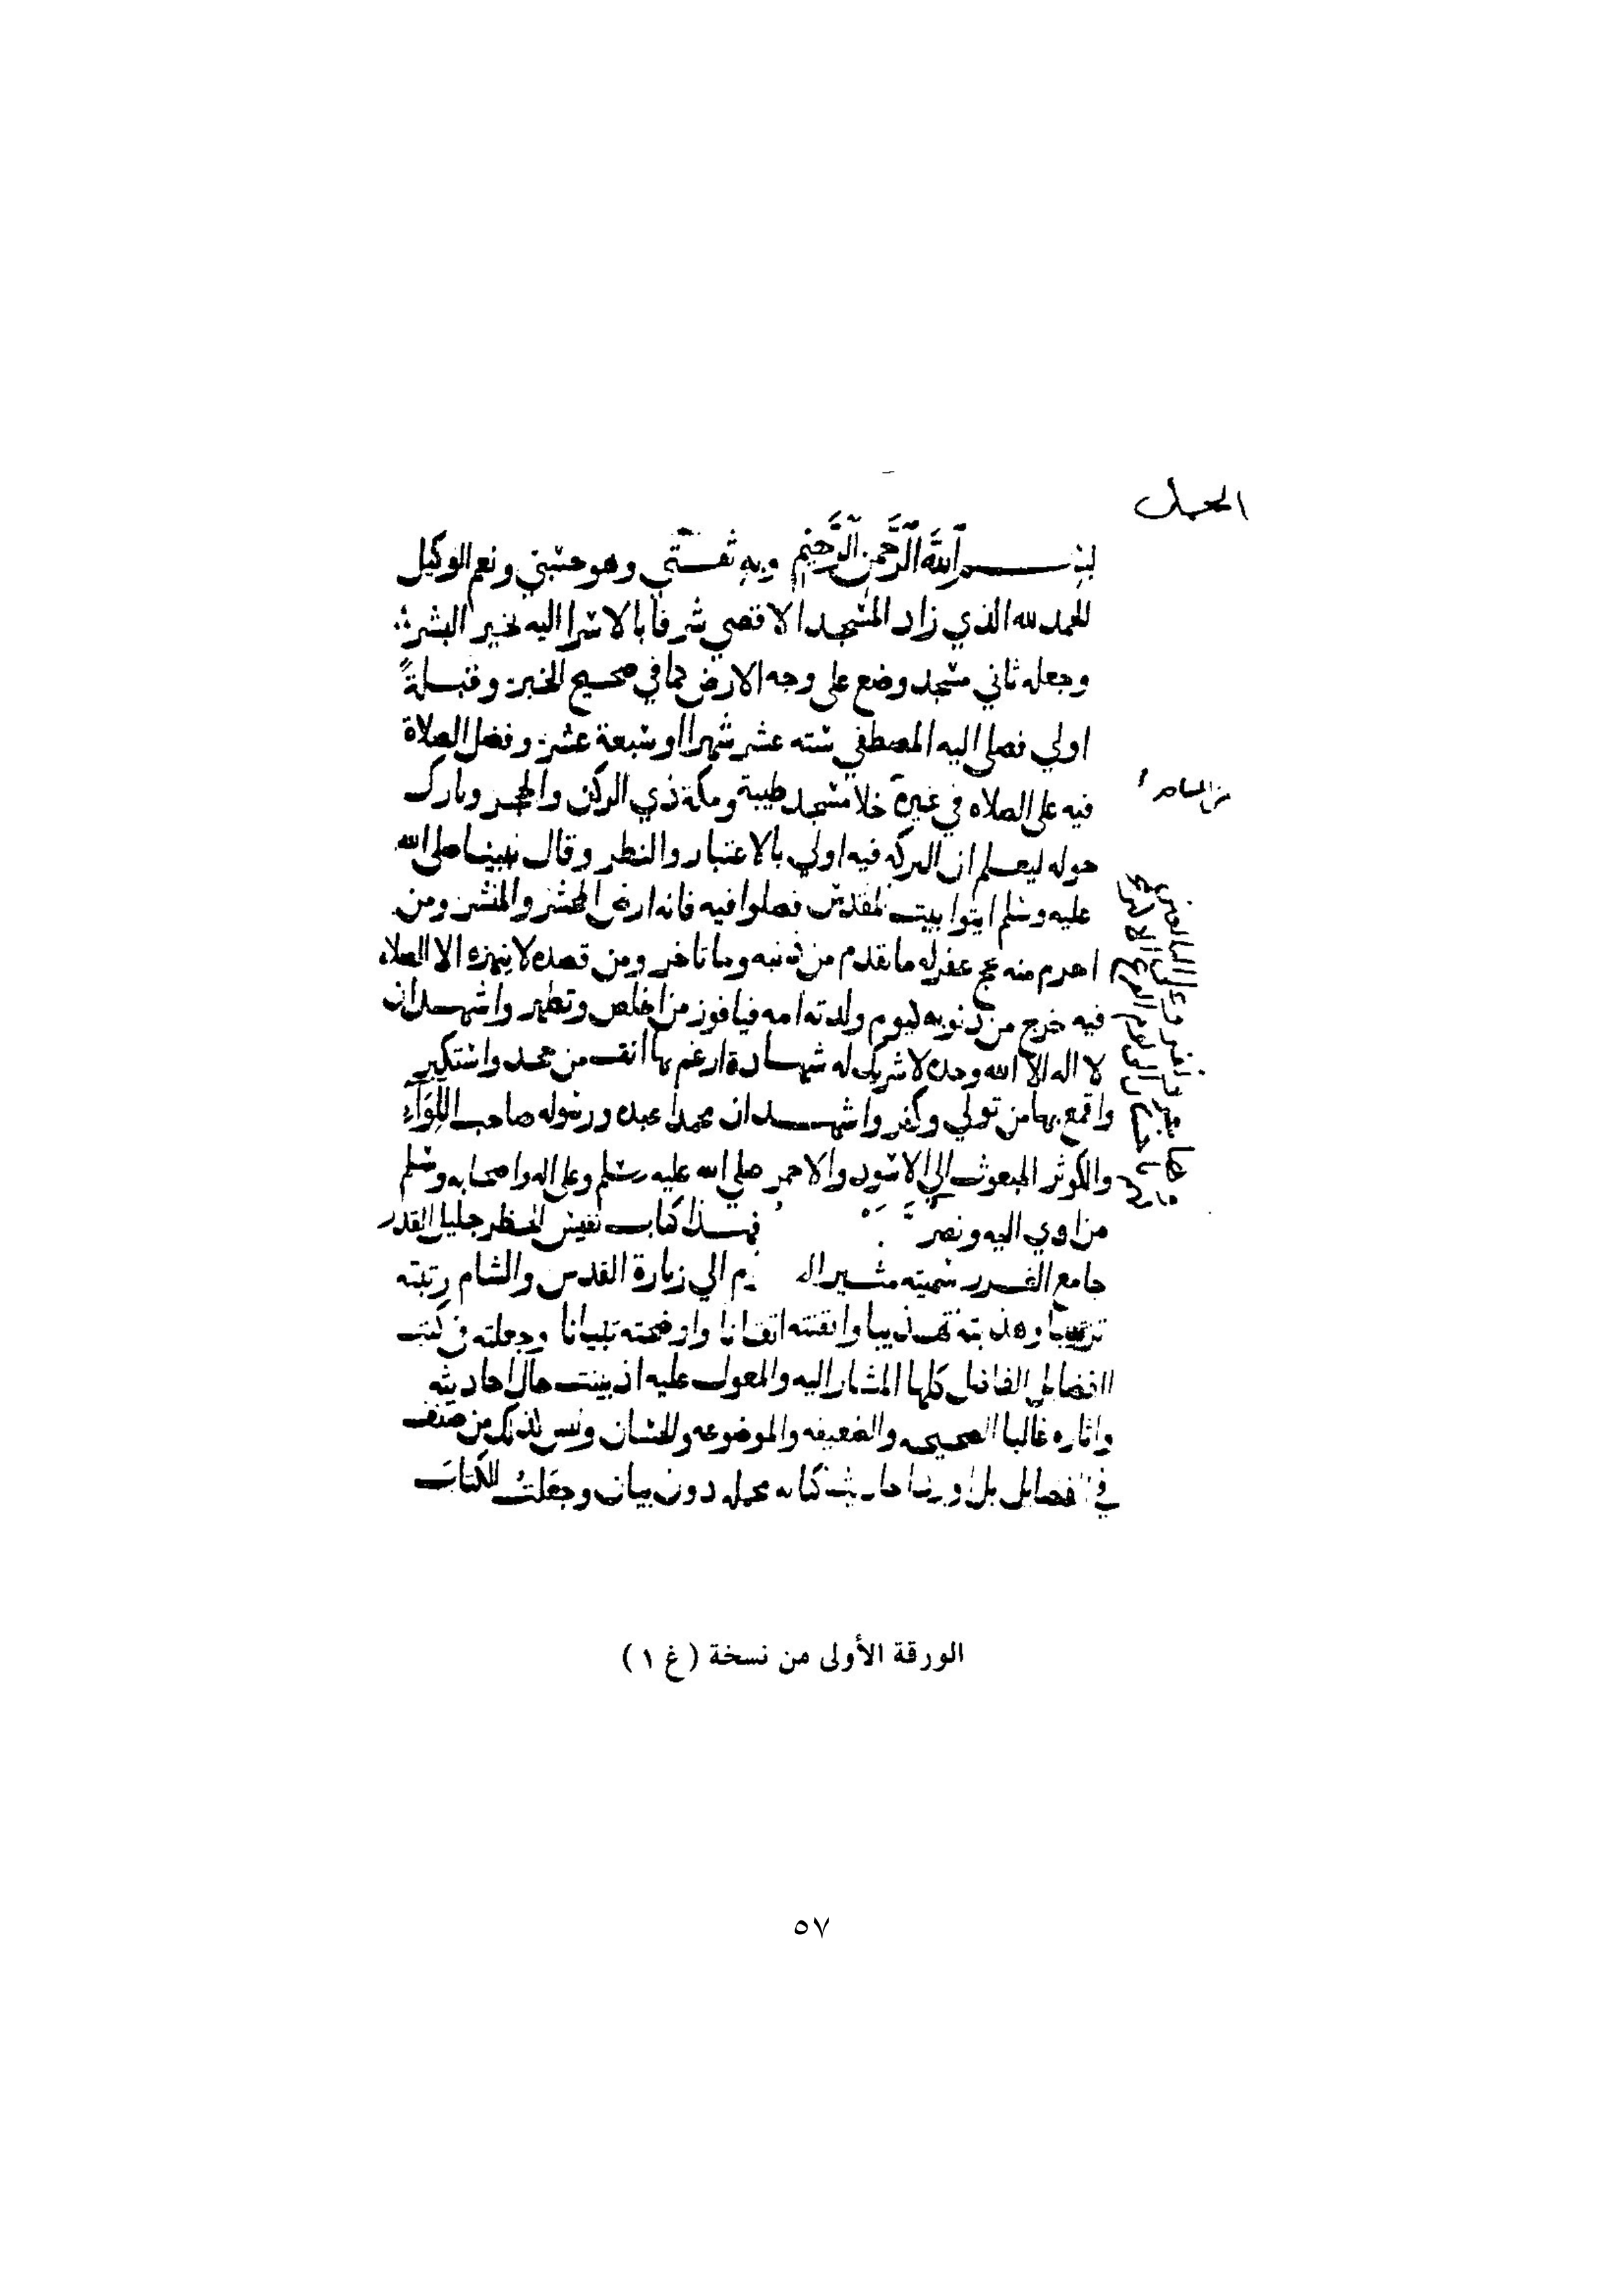 بسم الله الرحمن الرحيم وبه ثقتي وهو حسبي ونعم الوكيل
الحمد لله الذي زاد المسجد الاقصي شرفا بالاسرا اليه بخير البشر
وجعله ثاني مسجد وضع على وجه الارض كما في صحيح الخبر وقبلةً
اولي فصلى اليه المصطفي سته عشر شهرا او سبعة عشر وفضل الصلاة
فيه على الصلاه في غيره خلا مسجد طيبة ومكة ذي الركن والحجر وبارك
من المساجد
حوله ليعلم ان البركه فيه اولي بالاعتبار والنظر وقال نبينا صلى الله
عليه وسلم ايتوا بيت المقدس فصلوا فيه فانه ارض المحشر والمنشر ومن
احرم منه بحج غفر له ما تقدم من ذنبه وما تاخر ومن قصده لا ينهزه الا الصلاه
فيه خرج من ذنوبه كيوم ولدته امه فيا فوز من اخلص وتطهر واشهد ان
لا اله الا الله وحده لا شريك له شهادة ارغم بها انف من جحد واستكبر
واقمع بها من تولي وكفر واشهد ان محمدا عبده ورسوله صاحب اللِّوَآءِ
والكوثر المبعوث الي الاسود والاحمر صلي الله عليه وسلم وعلى اله واصحابه وسلم
من اوي اليه ونصر فهذا كتاب نفيس الخطر جليل القدر
جامع الغرر سميته مثير ال م الي زيارة القدس والشام رتبته
ترتيبا وهذبته تهذيبا واتقنته اتقانا واوضحته تبيانا وجعلته في كتب
الفضايل الفاضل كلها المشار اليه والمعول عليه اذ بينت حال احاديثه
واثاره غالبا الصحيحه والضعيفه والموضوعه والحسان وليس كذلك من صنف
في الفضايل بل اورد احاديث كتابه مجمله دون بيان وجعلت الكتاب
الورقة الأولى من نسخة (غ ١)
٥٧